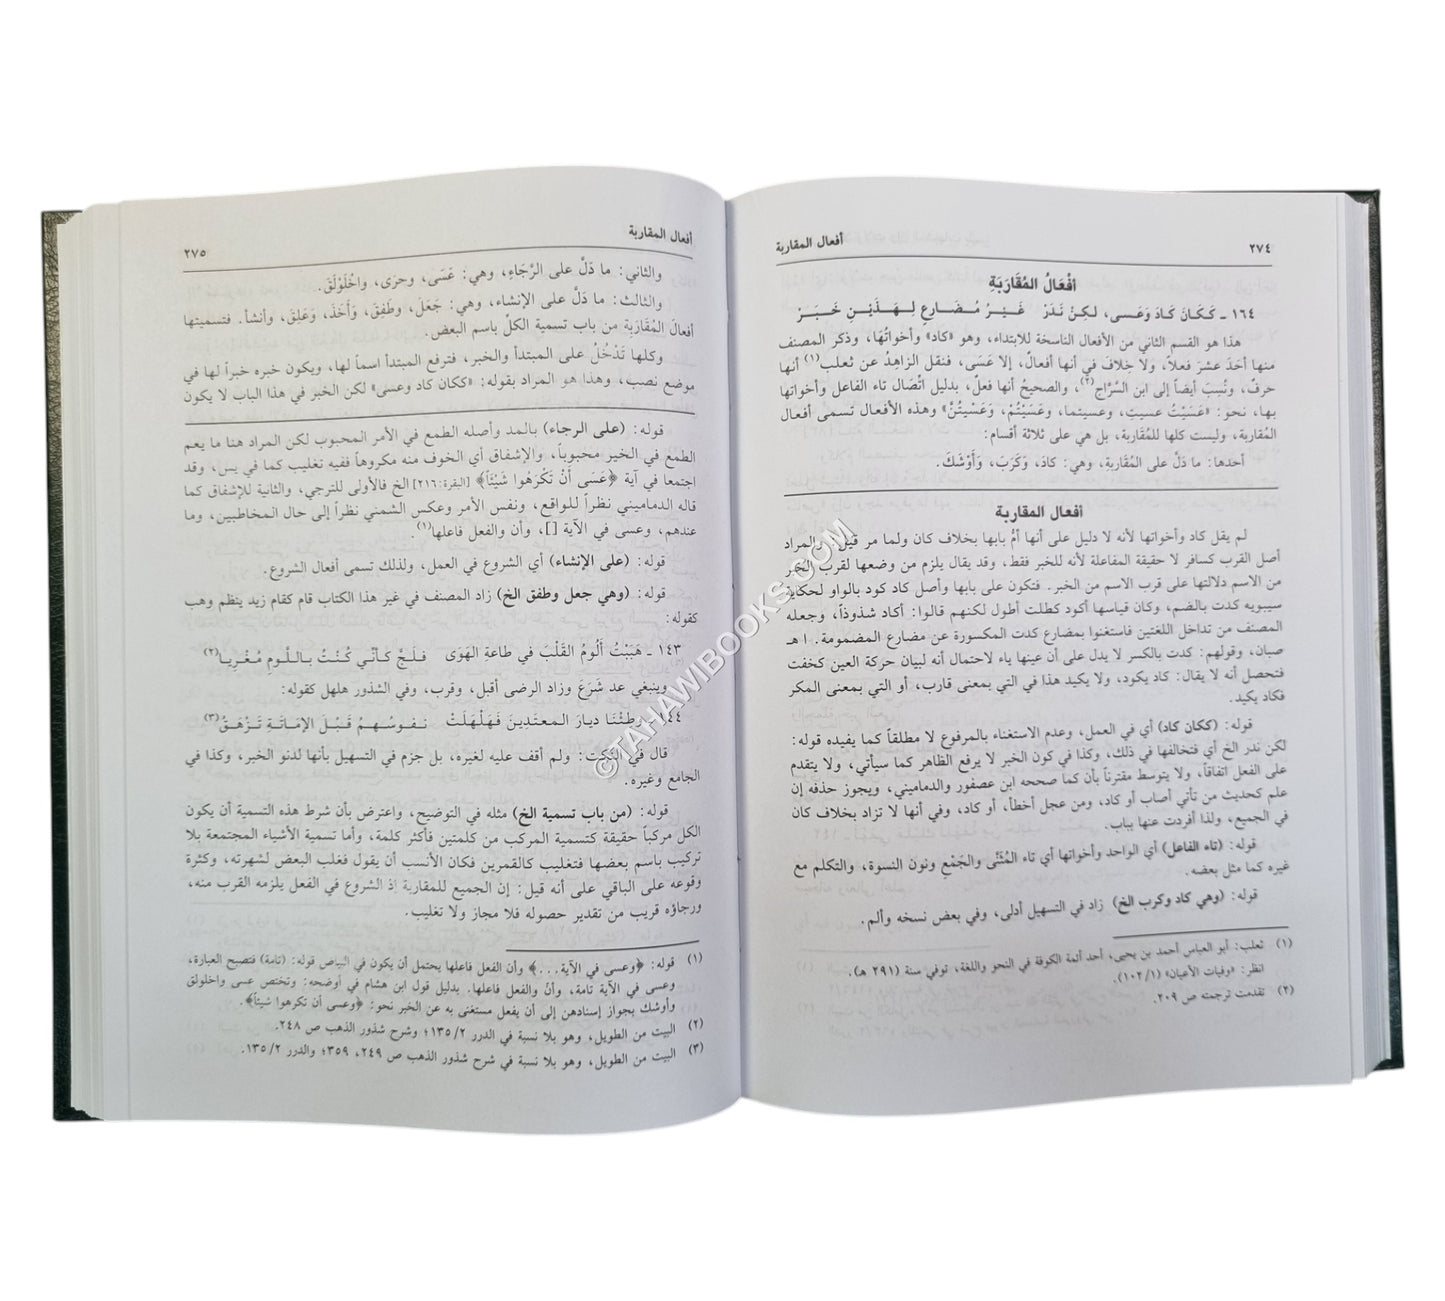 ٢٧٤
أفعال المقاربة
أفْعَالُ المُقَارَبَةِ
١٦٤ ـ كَكَانَ كَادَ وَعَسى، لَكِنْ نَدَرْ غَيْرُ مُضَارِعٍ لِهَذَيْنِ خَبَرْ
هذا هو القسم الثاني من الأفعال الناسخة للابتداء، وهو «كاد» وأخواتُهَا، وذكر المصنف
منها أحَدَ عشرَ فعلاً، ولا خِلافَ في أنها أفعالٌ، إلا عَسَى، فنقل الزاهدُ عن ثعلب(١) أنها
حرفٌ، ونُسِبَ أيضاً إلى ابن السَّراج(٢)، والصحيحُ أنها فعلٌ، بدليل اتِّصَال تاء الفاعل وأخواتها
بها، نحو: «عَسَيْتُ عسيتِ، وعسيتما، وعَسَيْتُمْ، وَعَسْيتُنَّ» وهذه الأفعال تسمى أفعال
المُقاربة، وليست كلها للمُقَاربة، بل هي على ثلاثة أقسام:
أحدها: ما دَلَّ على المُقَاربةِ، وهي: كادَ، وَكَرَبَ، وَأَوْشَكَ.
أفعال المقاربة
لم يقل كاد وأخواتها لأنه لا دليل على أنها أمُّ بابها بخلاف كان ولما مر قيل: والمراد
أصل القرب كسافر لا حقيقة المفاعلة لأنه للخبر فقط، وقد يقال يلزم من وضعها لقرب الخبر
من الاسم دلالتها على قرب الاسم من الخبر. فتكون على بابها وأصل كاد كود بالواو لحكاية
سيبويه كدت بالضم، وكان قياسها أكود كطلت أطول لكنهم قالوا: أكاد شذوذاً، وجعله
المصنف من تداخل اللغتين فاستغنوا بمضارع كدت المكسورة عن مضارع المضمومة. ا هـ
صبان، وقولهم: كدت بالكسر لا يدل على أن عينها ياء لاحتمال أنه لبيان حركة العين كخفت
فتحصل أنه لا يقال: كاد يكود، ولا يكيد هذا في التي بمعنى قارب، أو التي بمعنى المكر
فكاد يكيد.
قوله: (ككان كاد) أي في العمل، وعدم الاستغناء بالمرفوع لا مطلقاً كما يفيده قوله:
لكن ندر الخ أي فتخالفها في ذلك، وكذا في كون الخبر لا يرفع الظاهر كما سيأتي، ولا يتقدم
على الفعل اتفاقاً، ولا يتوسط مقترناً بأن كما صححه ابن عصفور والدماميني، ويجوز حذفه إن
علم كحديث من تأتي أصاب أو كاد، ومن عجل أخطأ، أو كاد، وفي أنها لا تزاد بخلاف كان
في الجميع، ولذا أفردت عنها بباب.
قوله: (تاء الفاعل) أي الواحد وأخواتها أي تاء المُثَنَّى والجَمْع ونون النسوة، والتكلم مع
غيره كما مثل بعضه.
قوله: (وهي كاد وكرب الخ) زاد في التسهيل أدلى، وفي بعض نسخه وألم.
(١) ثعلب: أبو العباس أحمد بن يحيى، أحد أئمة الكوفة في النحو واللغة، توفي سنة (٢٩١ هـ).
انظر: «وفيات الأعيان» (١/١٠٢).
(٢) تقدمت ترجمته ص ٢٠٩.
أفعال المقاربة
٢٧٥
والثاني: ما دَلَّ على الرَّجَاءِ، وهي: عَسَى، وحرَى، واخْلَوْلَقَ.
والثالث: ما دَلَّ على الإنشاء، وهي: جَعَلَ، وطَفِقَ، وَأَخَذَ، وَعَلِقَ، وأنشأ. فتسميتها
أفعالَ المُقَارَبَةِ من باب تسمية الكلِّ باسم البعض.
وكلها تَدْخُلُ على المبتدأ والخبر، فترفع المبتدأ اسماً لها، ويكون خبره خبراً لها في
موضع نصب، وهذا هو المراد بقوله: «ككان كاد وعسى» لكن الخبر في هذا الباب لا يكون
قوله: (على الرجاء) بالمد وأصله الطمع في الأمر المحبوب لكن المراد هنا ما يعم
الطمع في الخير محبوباً، والإشفاق أي الخوف منه مكروهاً ففيه تغليب كما في يس، وقد
اجتمعا في آية ﴿عَسَى أَنْ تَكْرَهُوا شَيْئاً﴾ [البقرة: ٢١٦] الخ فالأولى للترجي، والثانية للإشفاق كما
قاله الدماميني نظراً للواقع، ونفس الأمر وعكس الشمني نظراً إلى حال المخاطبين، وما
عندهم، وعسى في الآية []، وأن والفعل فاعلها(١).
قوله: (على الإنشاء) أي الشروع في العمل، ولذلك تسمى أفعال الشروع.
قوله: (وهي جعل وطفق الخ) زاد المصنف في غير هذا الكتاب قام كقام زيد ينظم وهب
كقوله:
١٤٣ ـ هَبَبْتُ أَلُومُ القَلْبَ في طاعةِ الهَوَى فَلَجَّ كَأَنِّي كُنْتُ بِاللَّومِ مُغْرِيا(٢)
وينبغي عد شَرَعَ وزاد الرضى أقبل، وقرب، وفي الشذور هلهل كقوله:
١٤٤ ـ وطِئْنَا ديارَ المعتَدِينَ فَهَلْهَلَتْ نفوسُهمُ قَبْلَ الإمَاتَةِ تَزْهَقُ(٣)
قال في النكت: ولم أقف عليه لغيره، بل جزم في التسهيل بأنها لدنو الخبر، وكذا في
الجامع وغيره.
قوله: (من باب تسمية الخ) مثله في التوضيح، واعترض بأن شرط هذه التسمية أن يكون
الكل مركباً حقيقة كتسمية المركب من كلمتين فأكثر كلمة، وأما تسمية الأشياء المجتمعة بلا
تركيب باسم بعضها فتغليب كالقمرين فكان الأنسب أن يقول فغلب البعض لشهرته، وكثرة
وقوعه على الباقي على أنه قيل: إن الجميع للمقاربة إذ الشروع في الفعل يلزمه القرب منه،
ورجاؤه قريب من تقدير حصوله فلا مجاز ولا تغليب.
(١) قوله: ﴿وعسى في الآية...﴾ وأن الفعل فاعلها يحتمل أن يكون في البياض قوله: (تامة) فتصبح العبارة،
وعسى في الآية تامة، وأنْ والفعل فاعلها. بدليل قول ابن هشام في أوضحه: وتختص عسى واخلولق
وأوشك بجواز إسنادهن إلى أن يفعل مستغنى به عن الخبر نحو: ﴿وعسى أن تكرهوا شيئاً﴾.
(٢) البيت من الطويل، وهو بلا نسبة في الدرر ٢/ ١٣٥؛ وشرح شذور الذهب ص ٢٤٨.
(٣) البيت من الطويل، وهو بلا نسبة في شرح شذور الذهب ص ٢٤٩، ٣٥٩؛ والدرر ٢/ ١٣٥.
©TAHAWIBOOKS.COM